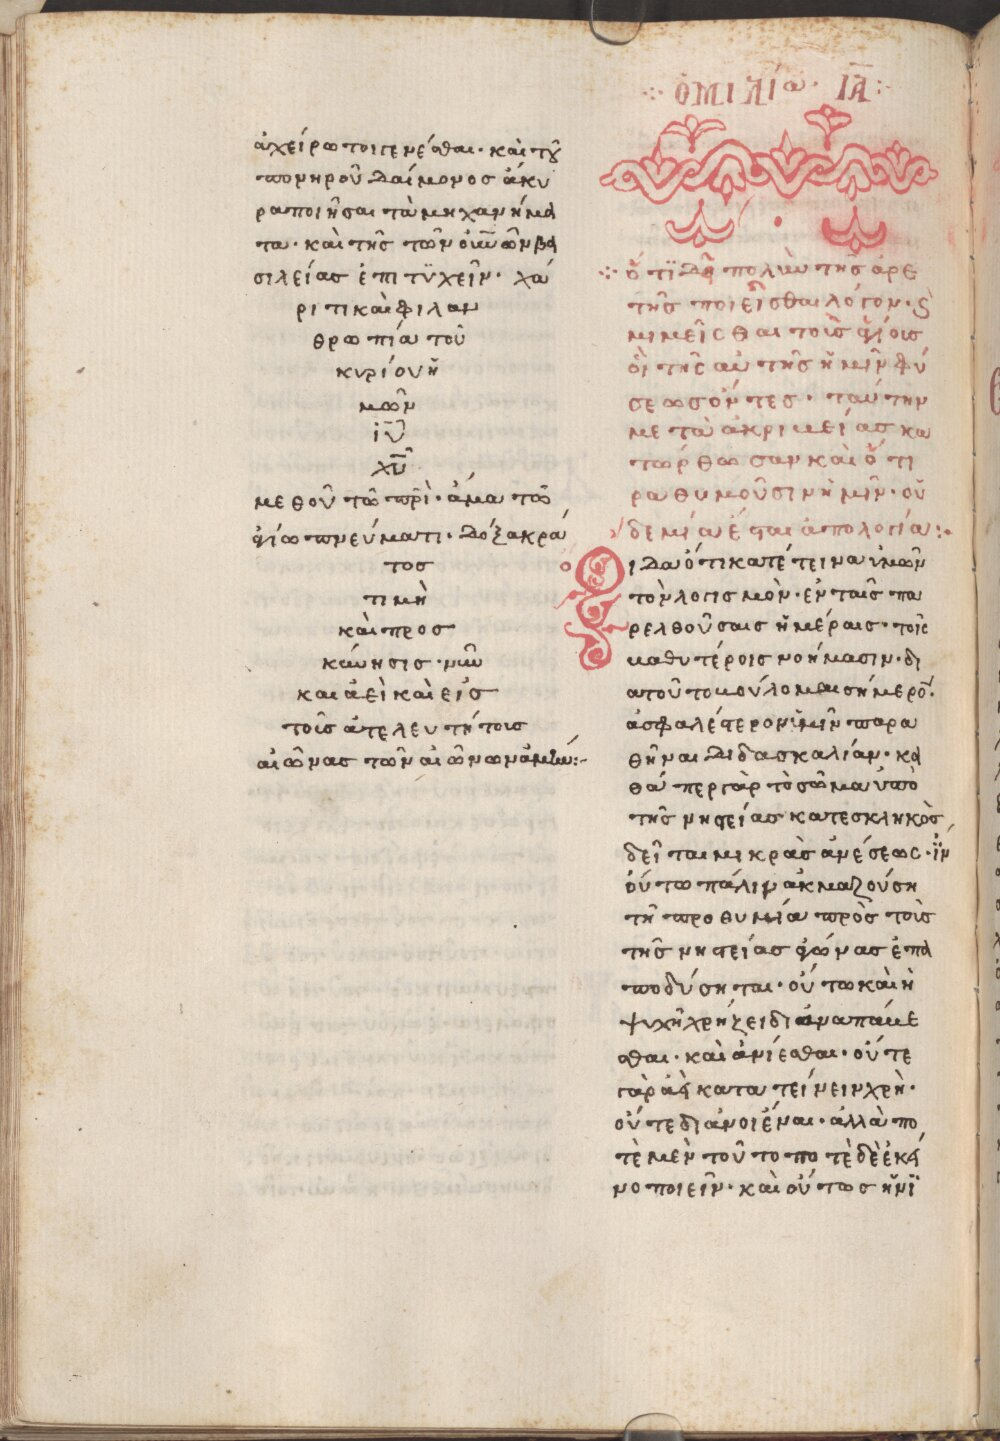 ἀχείρωτοι γενέσθαι· καὶ τοῦ
πονηροῦ δαίμονος ἄκυ
ρα ποιῆσαι τὰ μηχανήμα
τα· καὶ τῆς τῶν οὐνῶν βα
σιλείας ἐπιτϋχεῖν· χά
ριτι καὶ φιλαν
θρωπία τοῦ
κυρίου ἡ
μῶν
ἰῦ
χῦ
μεθ οὗ τῶ πρὶ· ἅμα τῶ
ἁγίω πνεύματι· δόξα κρά
τος
τιμὴ
καὶ προσ
κύνησις· νῦν
και ἀεὶ καὶ εἰς
τοὺς ἀτελευτήτους
αἰῶνας τῶν αἰώνων ἀμήν:-
ὁμιλία· ΙΑ:
ὅτϊ δεῖ πολὺν τῆς ἀρε
τῆς ποιεῖσθαι λόγον· ϗ
μιμεῖσθαι τοὺς ἁγίους
οἳ τῆς αὐτῆς ἡμῖν φύ
σεως ὄντες· ταύτην
μετὰ ἀκριβείας κα
τώρθωσαν καὶ ὅτι
ραθυμοῦσιν ἡμῖν· οὐ
δεμία ἔσται ἀπολογία:
Οἶδα ὅτι κατέτεινα ὑμῶν
τὸν λογισμὸν· ἐν ταῖς πα
ρελθούσαις ἡμέραις· τοῖς
βαθυτέροις νοήμασιν· δι
α τοῦτο βούλομαι σήμερον·
ἀσφαλέστερον ὑμῖν παρα
θῆναι διδασκαλίαν· κα
θάπερ γὰρ τὸ σῶμα ὑπὸ
τῆς νηστείας κατεσκληκὸς
δεῖται μικρὰς ἀνέσεως· ἵν
οὕτω πάλιν ἀκμαζούση
τῆ προθυμία πρὸς τοὺς
τῆς νηστείας ἀγώνας ἐπα
ποδύσηται· οὕτω καὶ ἡ
ψυχὴ χρήζει διαναπαύε
σθαι· καὶ ἀνίεσθαι· οὔτε
γὰρ ἀεὶ κατατείνειν χρὴ·
οὔτε διανοιέναι· ἀλλὰ πο
τὲ μὲν τοῦτο ποτὲ δὲ ἐκεῖ
νο ποιεῖν· καὶ οὕτως ἡνϊ